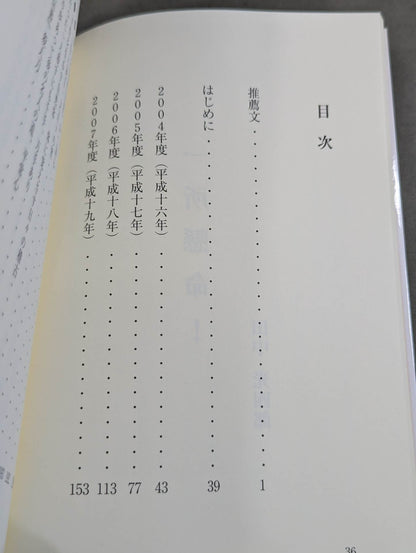 目次
推薦文・・・・・・・・・・・・・・・・・・・・・・・1
はじめに・・・・・・・・・・・・・・・・・・・・・・39
2004年度（平成十六年）・・・・・・・・・・・・・43
2005年度（平成十七年）・・・・・・・・・・・・・77
2006年度（平成十八年）・・・・・・・・・・・・・113
2007年度（平成十九年）・・・・・・・・・・・・・153
36